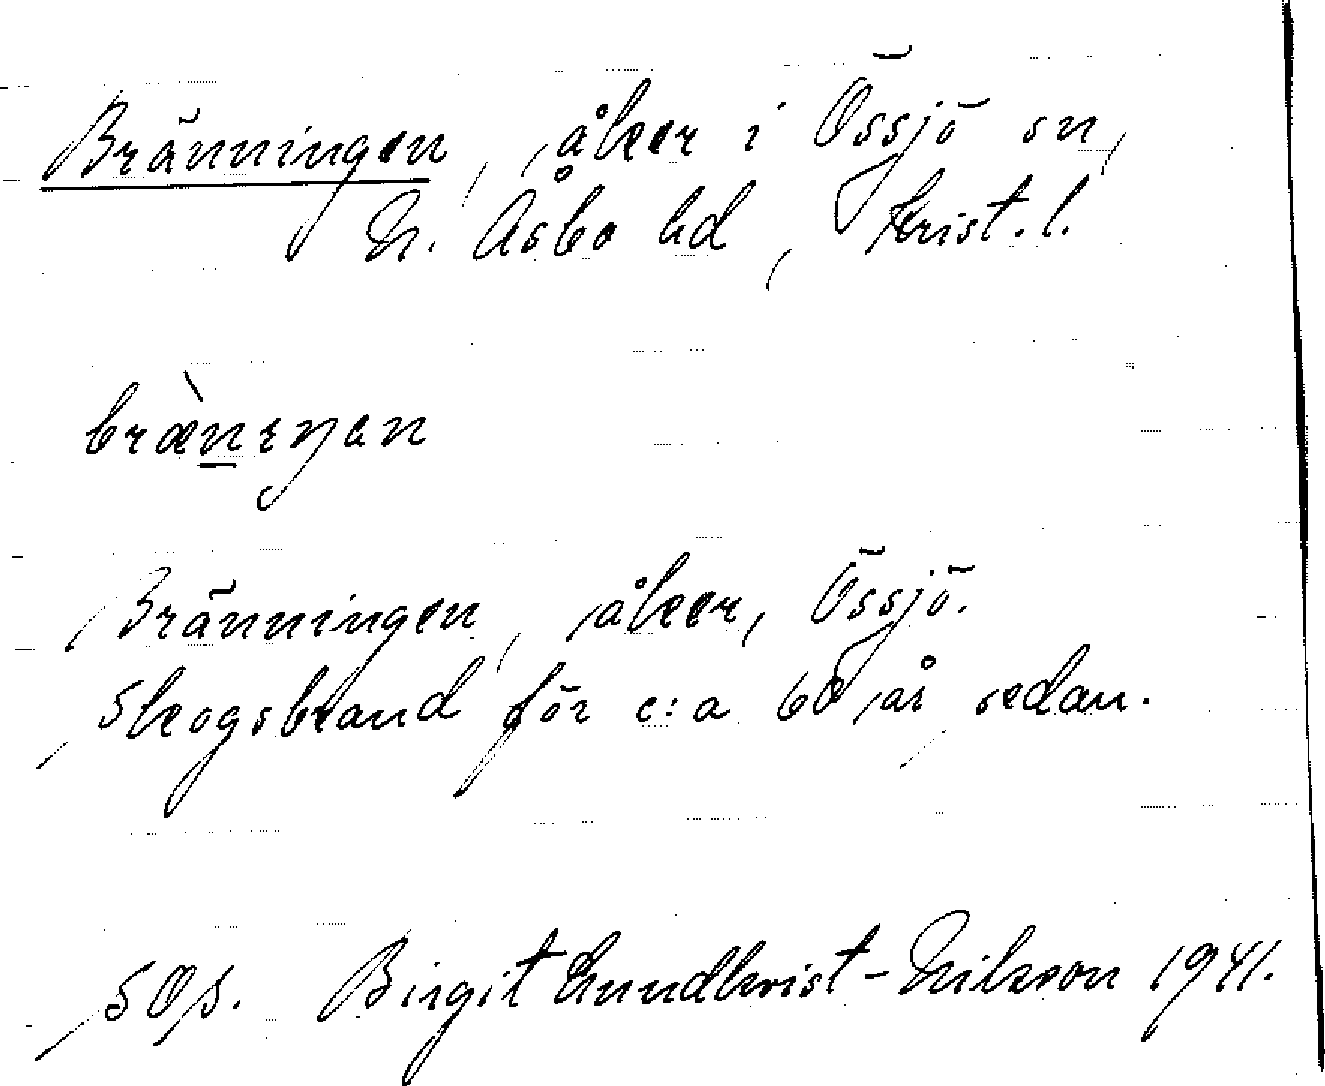 Bränningen, åker i Össjö sn,
N. Åsbo hd, Krist. l.
Bränningen, åker, Össjö.
Skogsbrand för c:a 60 år sedan.
SOS. Birgit Lundkvist-Nilsson 1941.